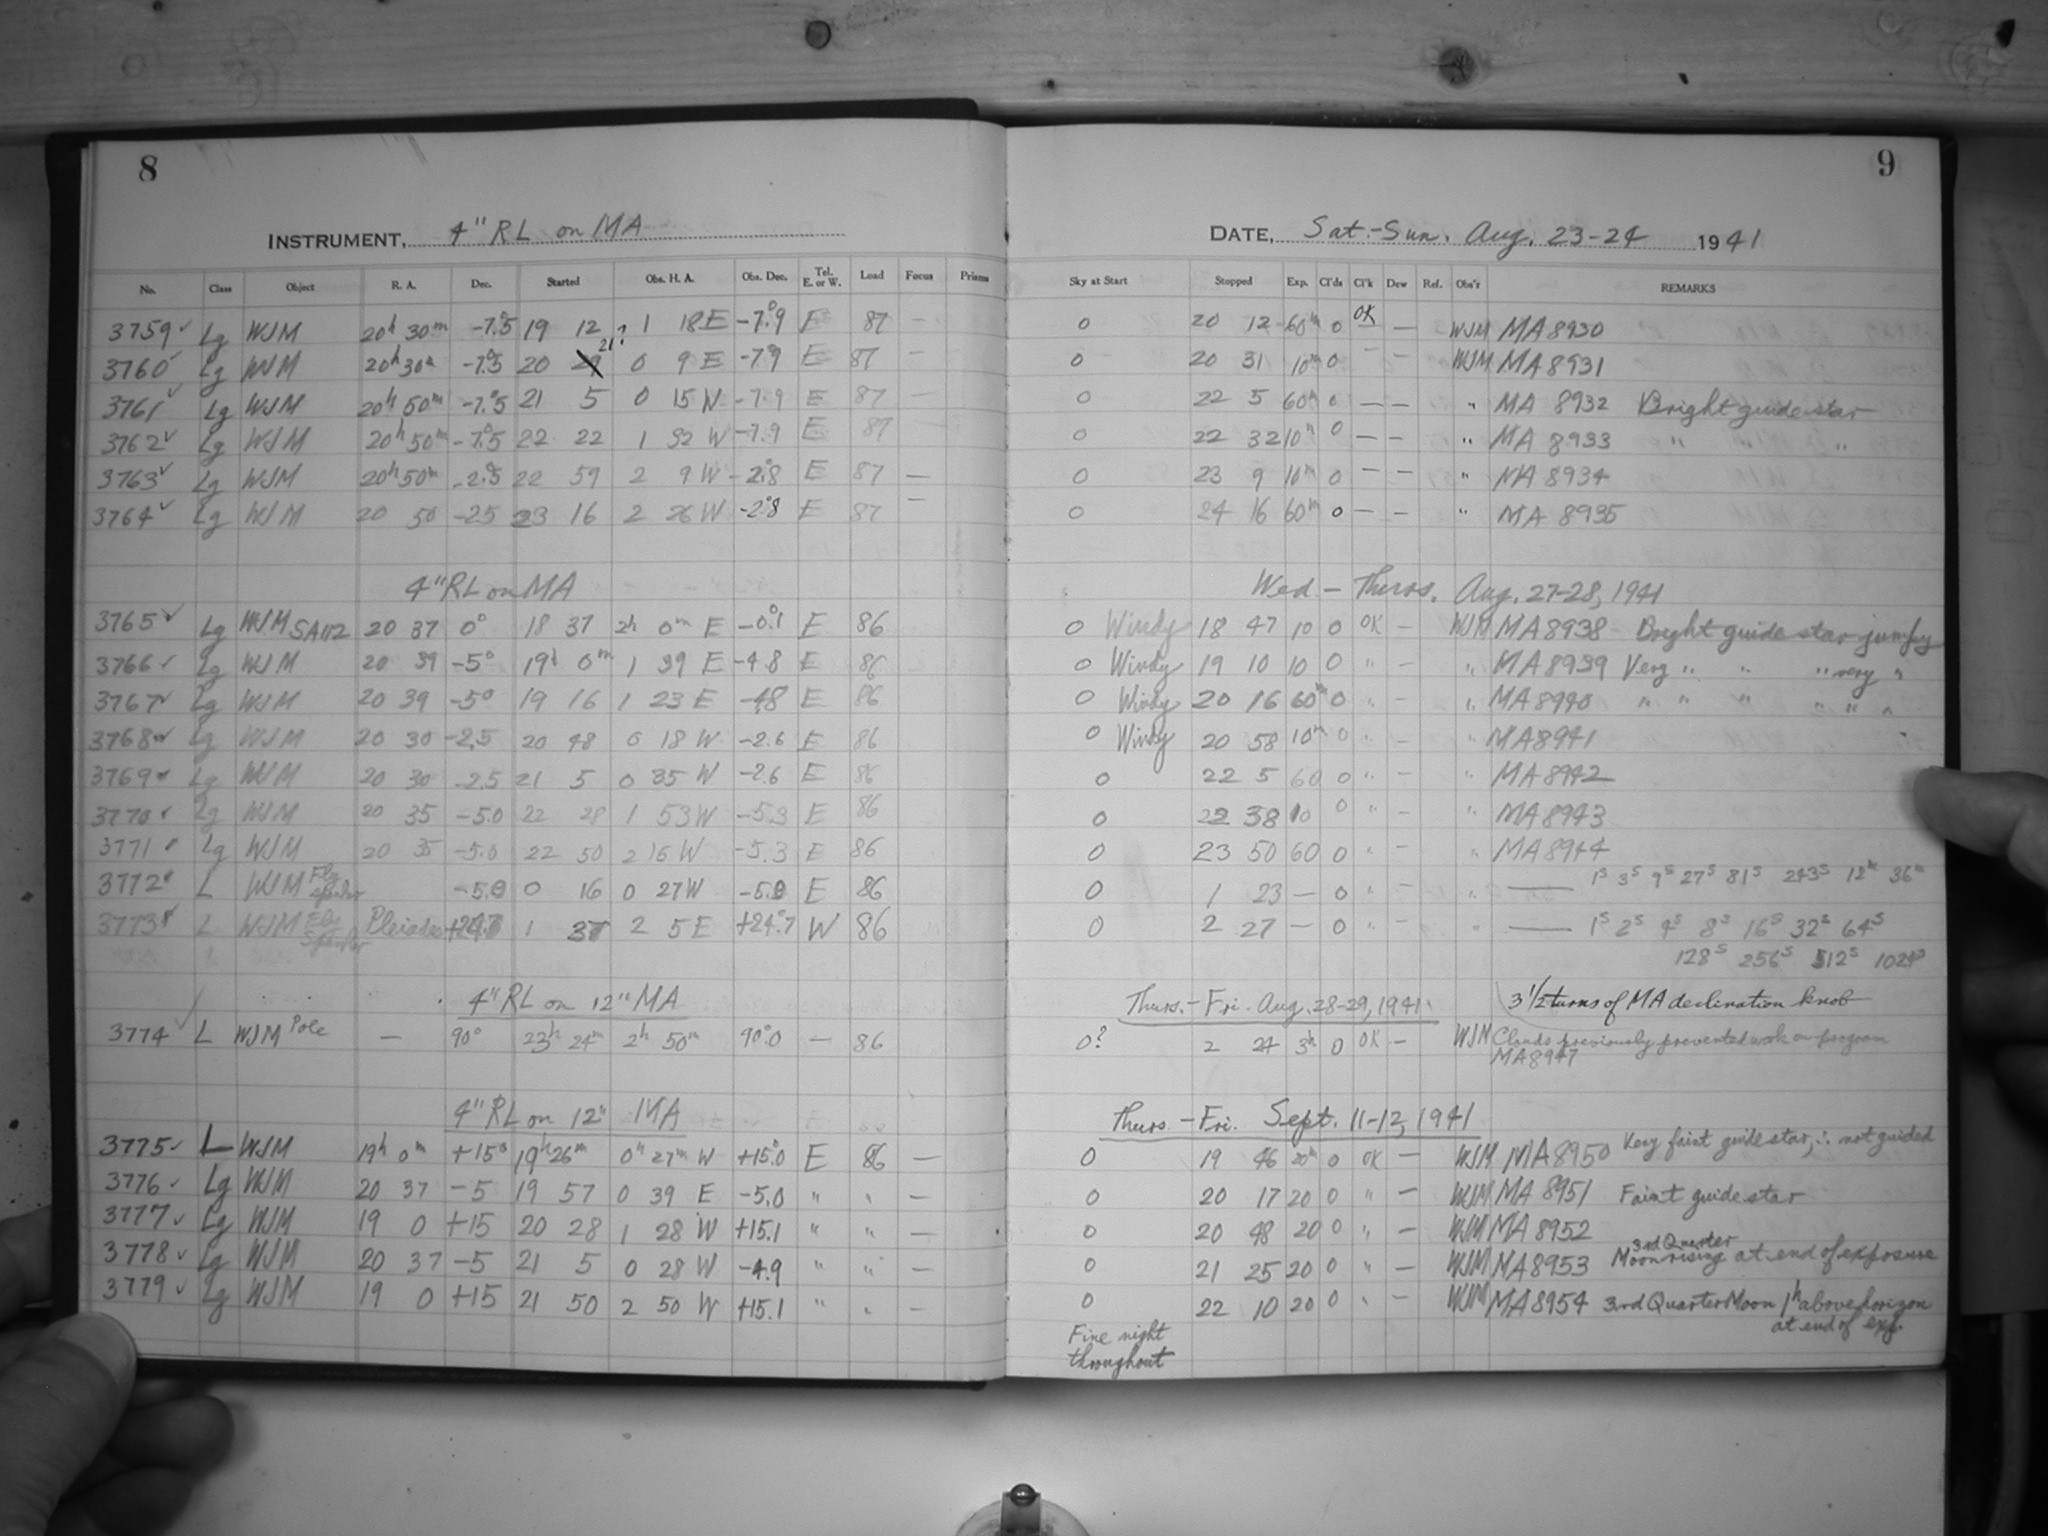 8
INSTRUMENT, 4" RL on MA
No. Class Object R. A. Dec. Started Obs. H. A. Obs. Dec. Tel. E. or W. Load Focus Prisms
3759 Lg WJM 20h 30m -7.°5 19 12 1 18 E -7.°9 E 87 —
3760 Lg WJM 20h 30m -7.°5 20 21? 0 9 E -7.°9 E 87 —
3761 Lg WJM 20h 50m -7.°5 21 5 0 15 W -7.9 E 87 —
3762 Lg WJM 20h 50m -7.°5 22 22 1 32 W -7.9 E 87
3763 Lg WJM 20h 50m -2.°5 22 59 2 9 W -2.°8 E 87 —
3764 Lg WJM 20 50 -2.5 23 16 2 26 W -2.°8 E 87 —
4" RL on MA
3765 Lg WJM SA112 20 37 0° 18 37 2h 0m E -0.°1 E 86
3766 Lg WJM 20 39 -5° 19h 0m 1 39 E -4.8 E 86
3767 Lg WJM 20 39 -5° 19 16 1 23 E -4.8 E 86
3768 Lg WJM 20 30 -2.5 20 48 0 18 W -2.6 E 86
3769 Lg WJM 20 30 -2.5 21 5 0 35 W -2.6 E 86
3770 Lg WJM 20 35 -5.0 22 28 1 53 W -5.3 E 86
3771 Lg WJM 20 35 -5.0 22 50 2 16 W -5.3 E 86
3772 L WJM Fly spider 0 16 0 27 W E 86
3773 L WJM Fly Spider Pleiades +24.7 1 37 2 5 E +24.°7 W 86
4" RL on 12" MA
3774 L WJM Pole — 90° 23h 24m 2h 50m 90.°0 — 86
4" RL on 12" MA
3775 L WJM 19h 0m +15° 19h 26m 0h 27m W +15.°0 E 86 —
3776 Lg WJM 20 37 -5 19 57 0 39 E -5.0 " " —
3777 Lg WJM 19 0 +15 20 28 1 28 W +15.1 " " —
3778 Lg WJM 20 37 -5 21 5 0 28 W -4.9 " " —
3779 Lg WJM 19 0 +15 21 50 2 50 W +15.1 " " —
9
DATE, Sat.-Sun. Aug. 23-24 1941
Sky at Start Stopped Exp. Cl'ds Cl'k Dew Ref. Obs'r REMARKS
0 20 12 60m 0 OK — WJM MA 8930
0 20 31 10m 0 — — WJM MA 8931
0 22 5 60m 0 — — " MA 8932 Bright guide star
0 22 32 10m 0 — — " MA 8933 " " "
0 23 9 10m 0 — — " MA 8934
0 24 16 60m 0 — — " MA 8935
Wed. - Thurs. Aug. 27-28, 1941
0 Windy 18 47 10 0 OK — WJM MA 8938 Bright guide star jumpy
0 Windy 19 10 10 0 " — " MA 8939 Very " " " very "
0 Windy 20 16 60m 0 " — " MA 8940 " " " " " "
0 Windy 20 58 10m 0 " — " MA 8941
0 22 5 60 0 " — " MA 8942
0 22 38 10 0 " — " MA 8943
0 23 50 60 0 " — " MA 8944
0 1 23 — 0 " — " —— 1s 3s 9s 27s 81s 243s 12m 36m
0 2 27 — 0 " — " —— 1s 2s 4s 8s 16s 32s 64s
128s 256s 512s 1024s
Thurs.-Fri. Aug. 28-29, 1941 3 1/2 turns of MA declination knob
0? 2 24 3h 0 OK — WJM Clouds previously prevented work on program
MA 8947
Thurs.-Fri. Sept. 11-12, 1941
0 19 46 20m 0 OK — WJM MA 8950 Very faint guide star, ∴ not guided
0 20 17 20 0 " — WJM MA 8951 Faint guide star
0 20 48 20 0 " — WJM MA 8952
0 21 25 20 0 " — WJM MA 8953 3rd Quarter Moon rising at end of exposure
0 22 10 20 0 " — WJM MA 8954 3rd Quarter Moon 1h above horizon
at end of exp.
Fine night
throughout